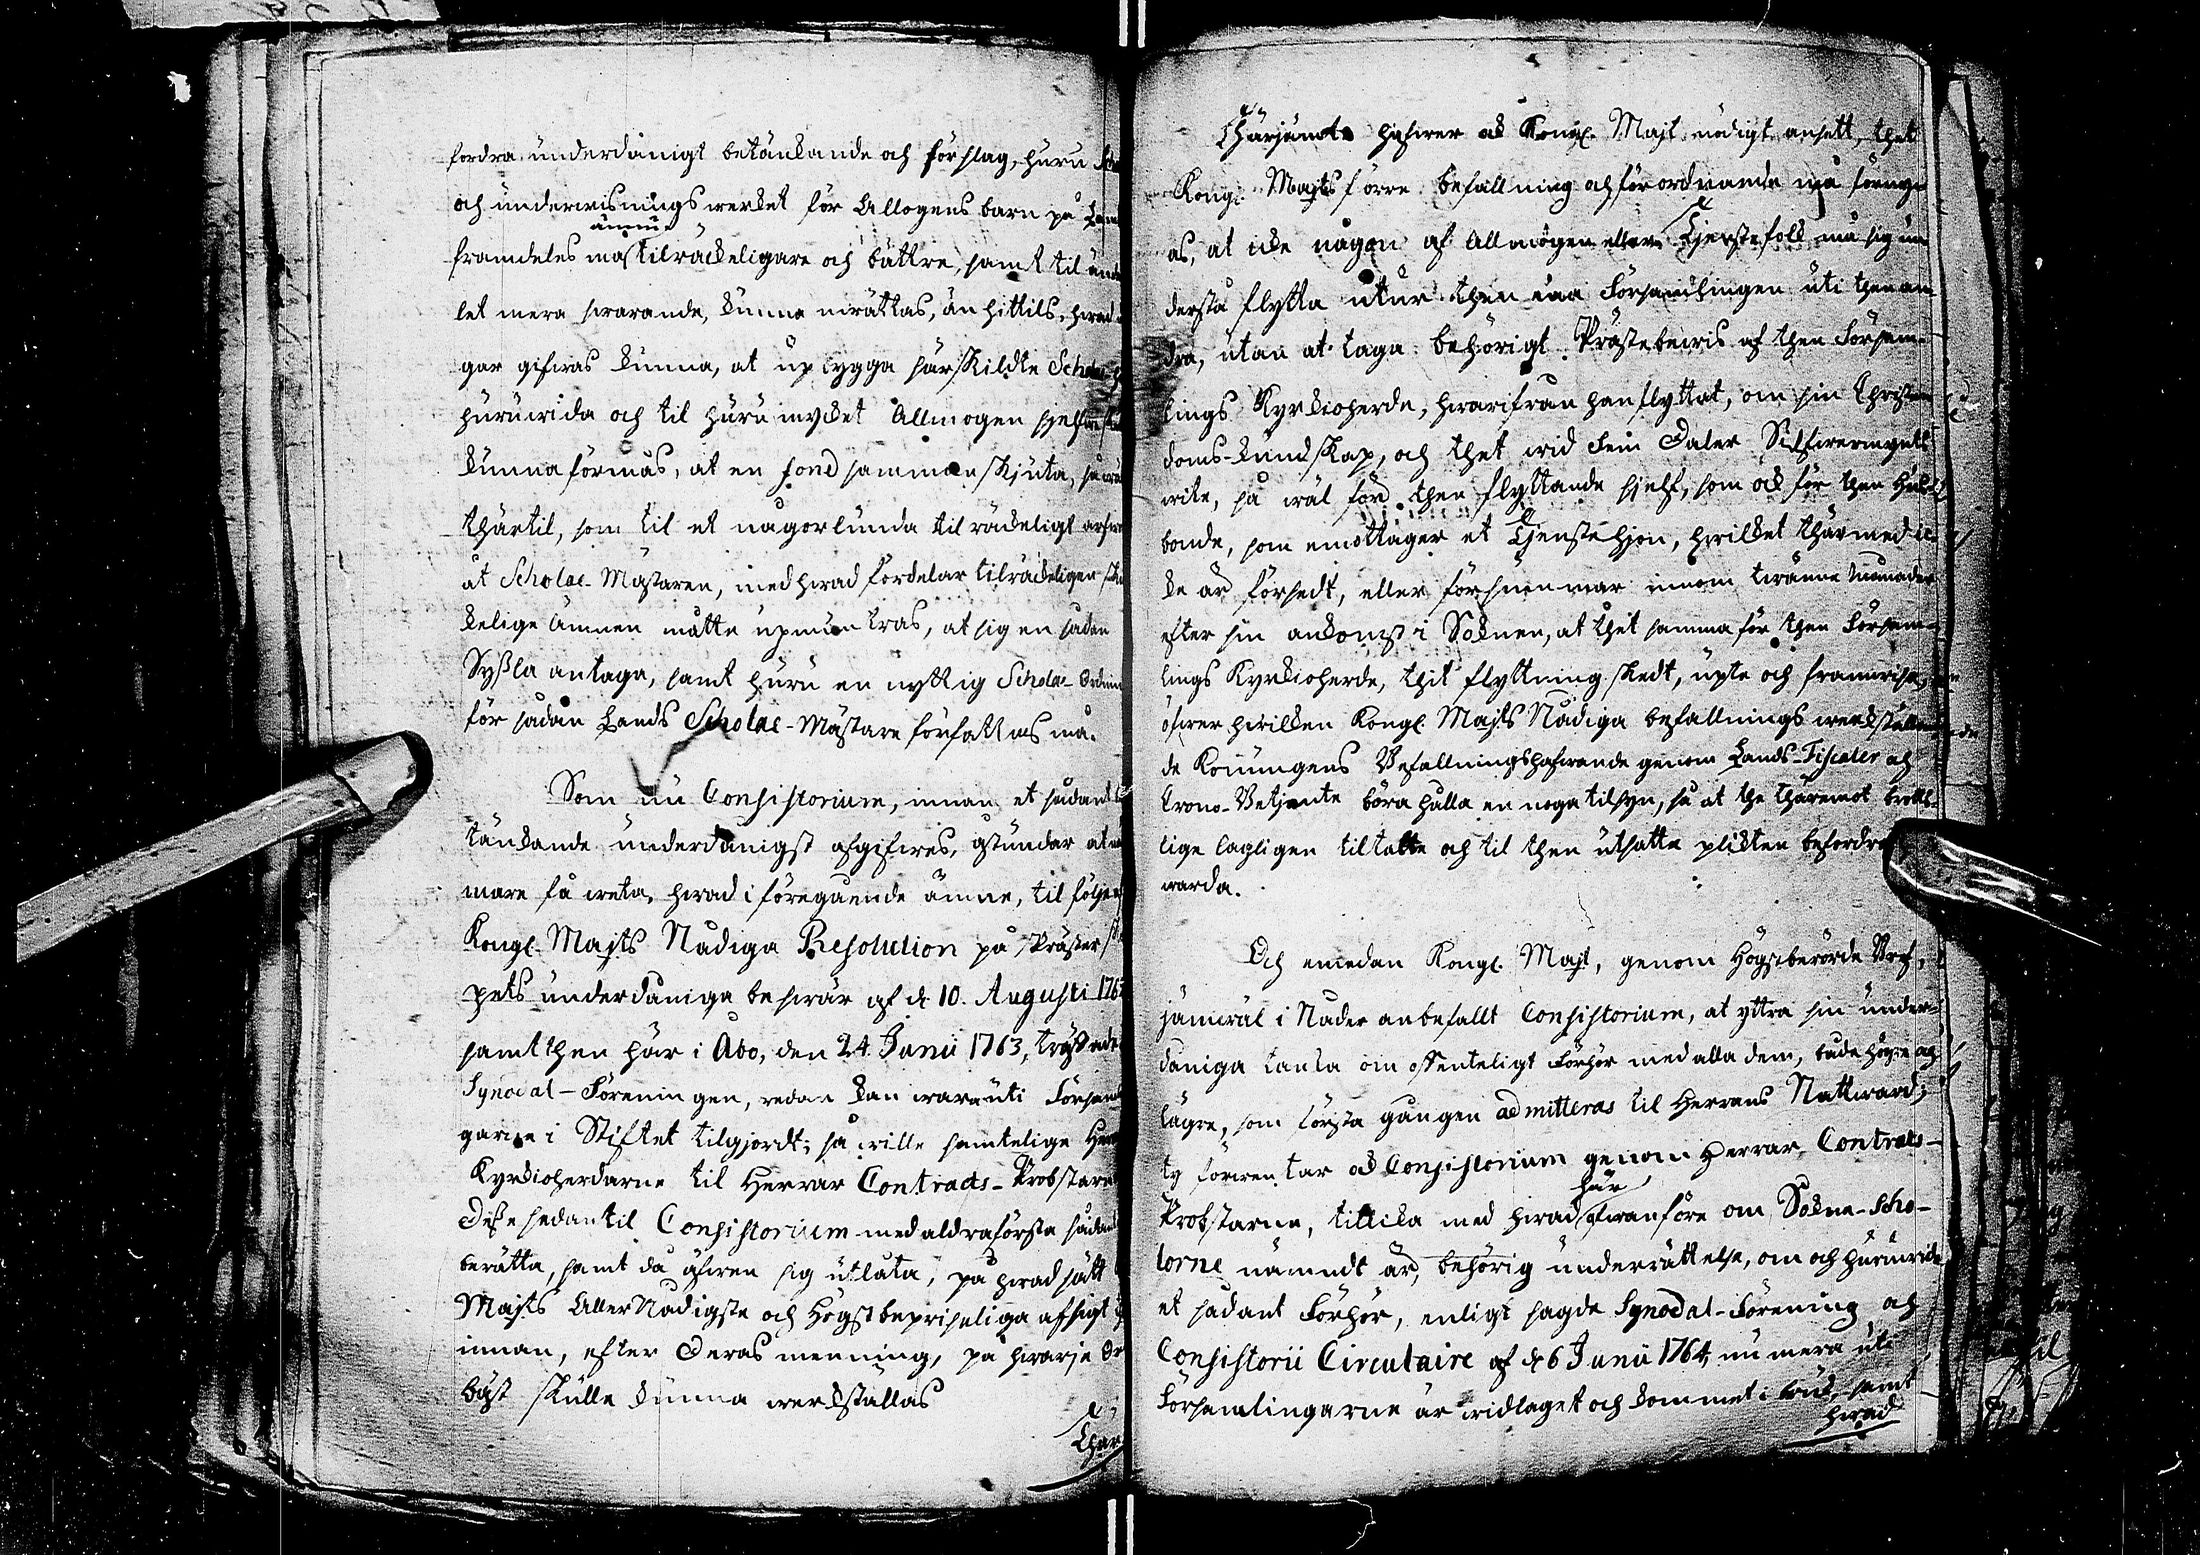 fordra underdånigt betänkande och förslag, huru
och underwisningswerket för Allogens barn på
ännu
framdeles mas tilräckeligare och bättre, samt til
let mera swarande, kunna inrättas, än hittils, hwad
gar gifwas kunna, at upbygga särskildte Scholae
huruwida och til huru mycket Allmogen sjelfwe
kunna förmås, at en fond sammanskjuta, så wäl
thärtil, som til et någorlunda tilräckeligt
åt Scholae-Mästaren, med hwad fördelar tilräckeligen
kelige ämnen måtte upmuntras, at sig en sådan
Sysla antaga, samt huru en nyttig Scholae-
för sådan Lands Scholae-Mästare författas må.
Som nu Consistorium, innan et sådant
tänkande underdånigst afgifwes, åstundar at
mare få weta, hwad i föregående ämne, til följe
Kongl. Majts Nådiga Resolution på Präster
pets underdåniga beswär af d. 10. Augusti
samt then här i Åbo, den 24. Junii 1763, tryckade
Synodal-Föreningen, redan kan wara uti
garne i Stiftet tilgjordt; så wille samtelige
Kyrkioherdarne til Herrar Contracts-Probstarne
Desse sedan til Consistorium med aldraförsta
berätta, samt då äfwen sig utlåta, på hwad sätt
Majts AllerNådigste och Högstbepriseliga afsigt
innan, efter Deras mening, på hwarje
bäst skulle kunna werkställas
Thär
Thärjämte hafwer ock Kongl. Majt nödigt ansett, thet
Kongl. Majts förre befallning och förordnande må
as, at icke någon af Allmogen eller Tjenstefolk må sig un
derstå flytta utur then ena Församlingen uti then an
dra, utan at taga behörigt Prästebewis af then Försam-
lings Kyrkioherde, hwarifrån han flyttat, om sin Christen
doms-kundskap, och thet wid Fem Daler Silfwermynts
wite, så wäl för then flyttande sjelf, som ock för then Hus
bonde, som emottager et Tjenstehjon, hwilket thärmed ic
ke är försedt, eller försummar innom twänne månader
efter sin ankomst i Soknen, at thet samma för then Försam-
lings Kyrkioherde, thit flyttning skedt, upte och framwisa,
öfwer hwilken Kongl. Majts Nådiga befallnings werkställan
de Konungens Befallningshafwande genom Lands-Fiscaler och
Crono-Betjente böra hålla en noga tilsyn, så at the thäremot brotts-
lige lagligen tiltalte och til then utsatte plikten befordra
warda.
Och emedan Kongl. Majt, genom Högstberörde Bref,
jämwäl i Nåder anbefallt Consistorium, at yttra sin under-
dåniga tanka om offenteligt Förhör med alla dem, både högre och
lägre, som första gången admitteras til Herrans Nattward;
ty förwentar ock Consistorium genom Herrar Contracts-
här
Probstarne, tillika med hwad ofwanföre om Sokne-Scho-
lorne nämndt är, behörig underrättelse, om och huruwida
et sådant Förhör, enligt sagde Synodal-Förening och
Consistorii Circulaire af d. 6 Junii 1764, nu mera uti
Församlingarne är widtaget och kommet i bruk, samt
hwad